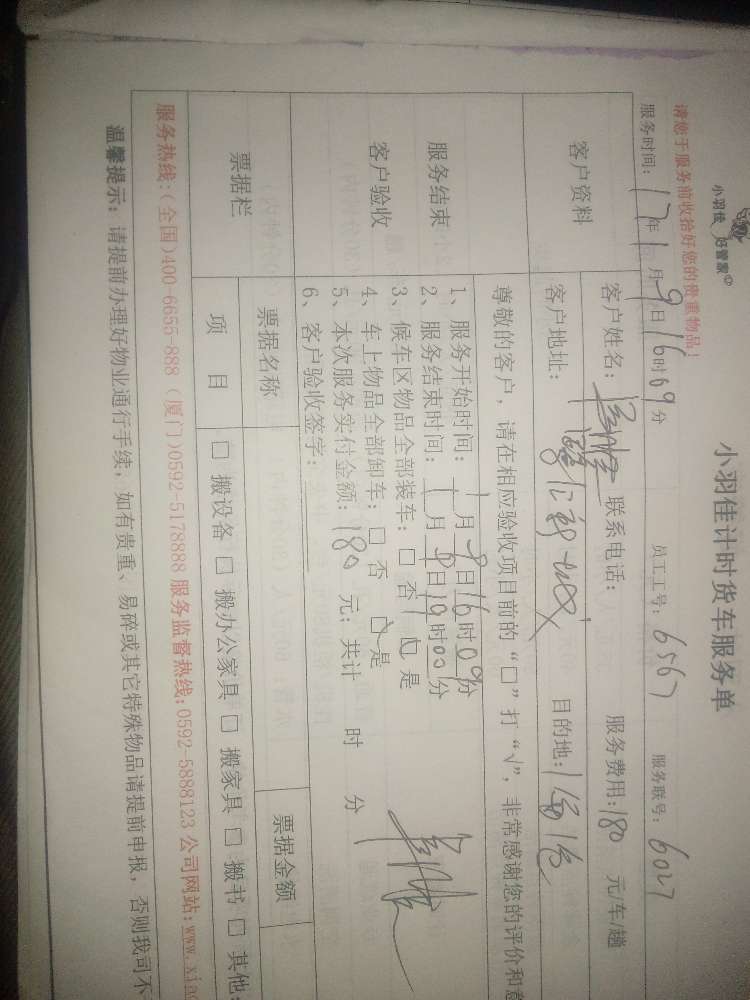 小羽佳 好管家
小羽佳计时货车服务单
请您于服务前收拾好您的贵重物品!
服务时间: 17年1月9日16时09分 员工工号: 6567 服务联号: 6027
客户资料
客户姓名: 联系电话: 服务费用: 180 元/车/趟
客户地址: 目的地:
尊敬的客户, 请在相应验收项目前的“□”打“√”, 非常感谢您的评价和意
服务结束
客户验收
1、服务开始时间: 1月9日16时09分
2、服务结束时间: 1月9日19时00分
3、候车区物品全部装车: □ 否 □ 是
4、车上物品全部卸车: □ 否 □ 是
5、本次服务实付金额: 180 元; 共计 时 分
6、客户验收签字:
票据栏
票据名称 票据金额
项 目 □ 搬设备 □ 搬办公家具 □ 搬家具 □ 搬书 □ 其他:
服务热线:(全国)400-6655-888 (厦门)0592-5178888 服务监督热线:0592-5888123 公司网站:www.xing
温馨提示: 请提前办理好物业通行手续, 如有贵重、易碎或其它特殊物品请提前申报, 否则我司不